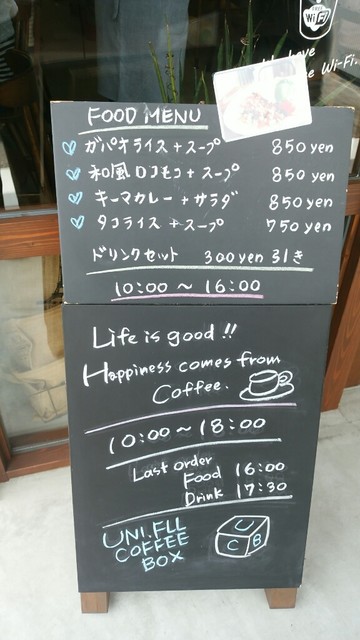 Wi Fi
Love
Wi-Fi.
FOOD MENU
ガパオライス + スープ 850 yen
和風ロコモコ + スープ 850 yen
キーマカレー + サラダ 850 yen
タコライス + スープ 750 yen
ドリンクセット 300 yen 引き
10:00 ~ 16:00
Life is good !!
Happiness comes from
Coffee.
10:00 ~ 18:00
Last order
Food 16:00
Drink 17:30
UNI.FLL
COFFEE
BOX
U
C B